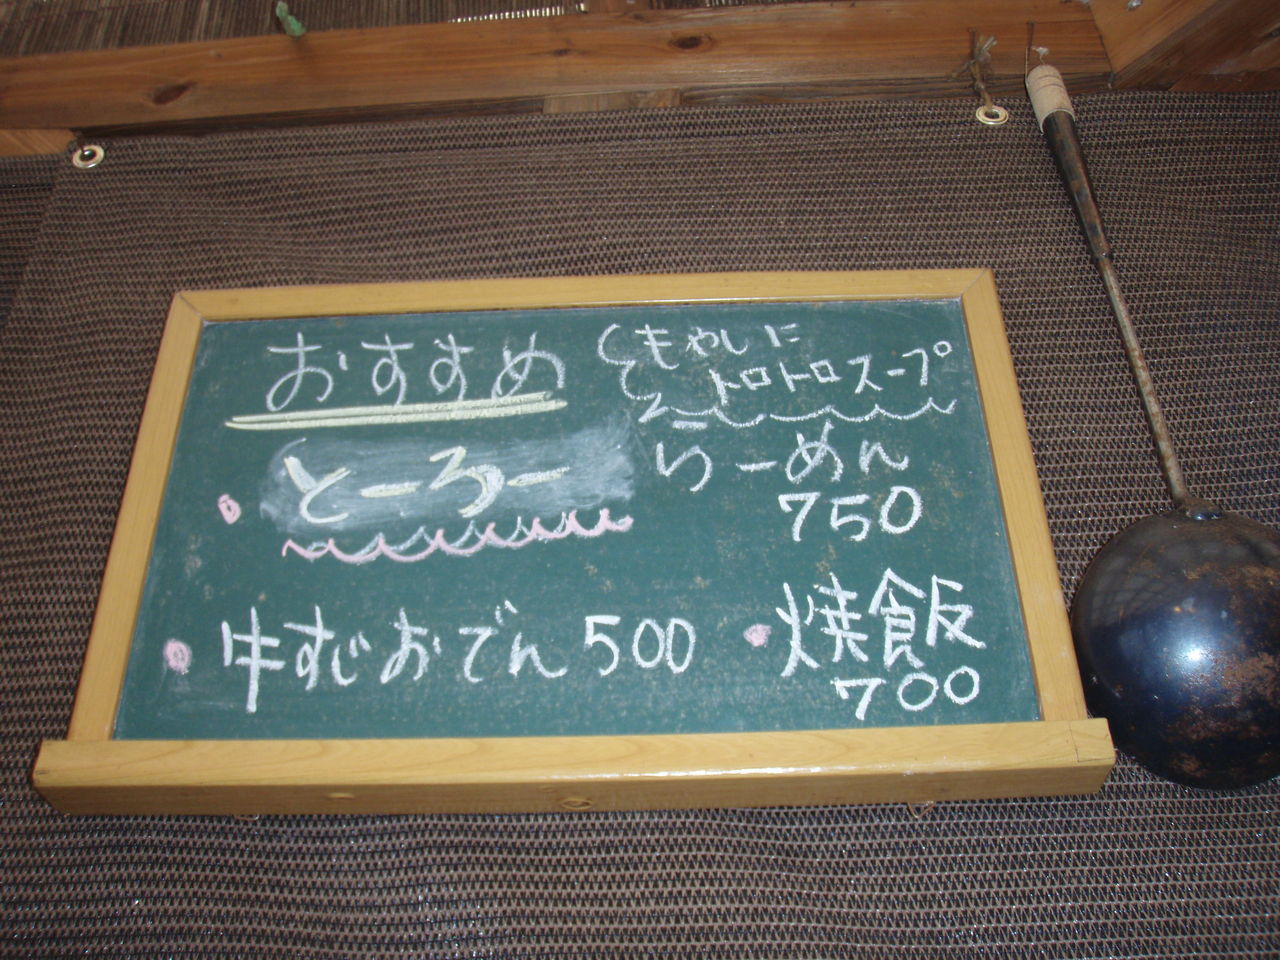 おすすめ
もやしに
トロトロスープ
とーろー
らーめん
750
牛すじおでん 500
焼飯
700